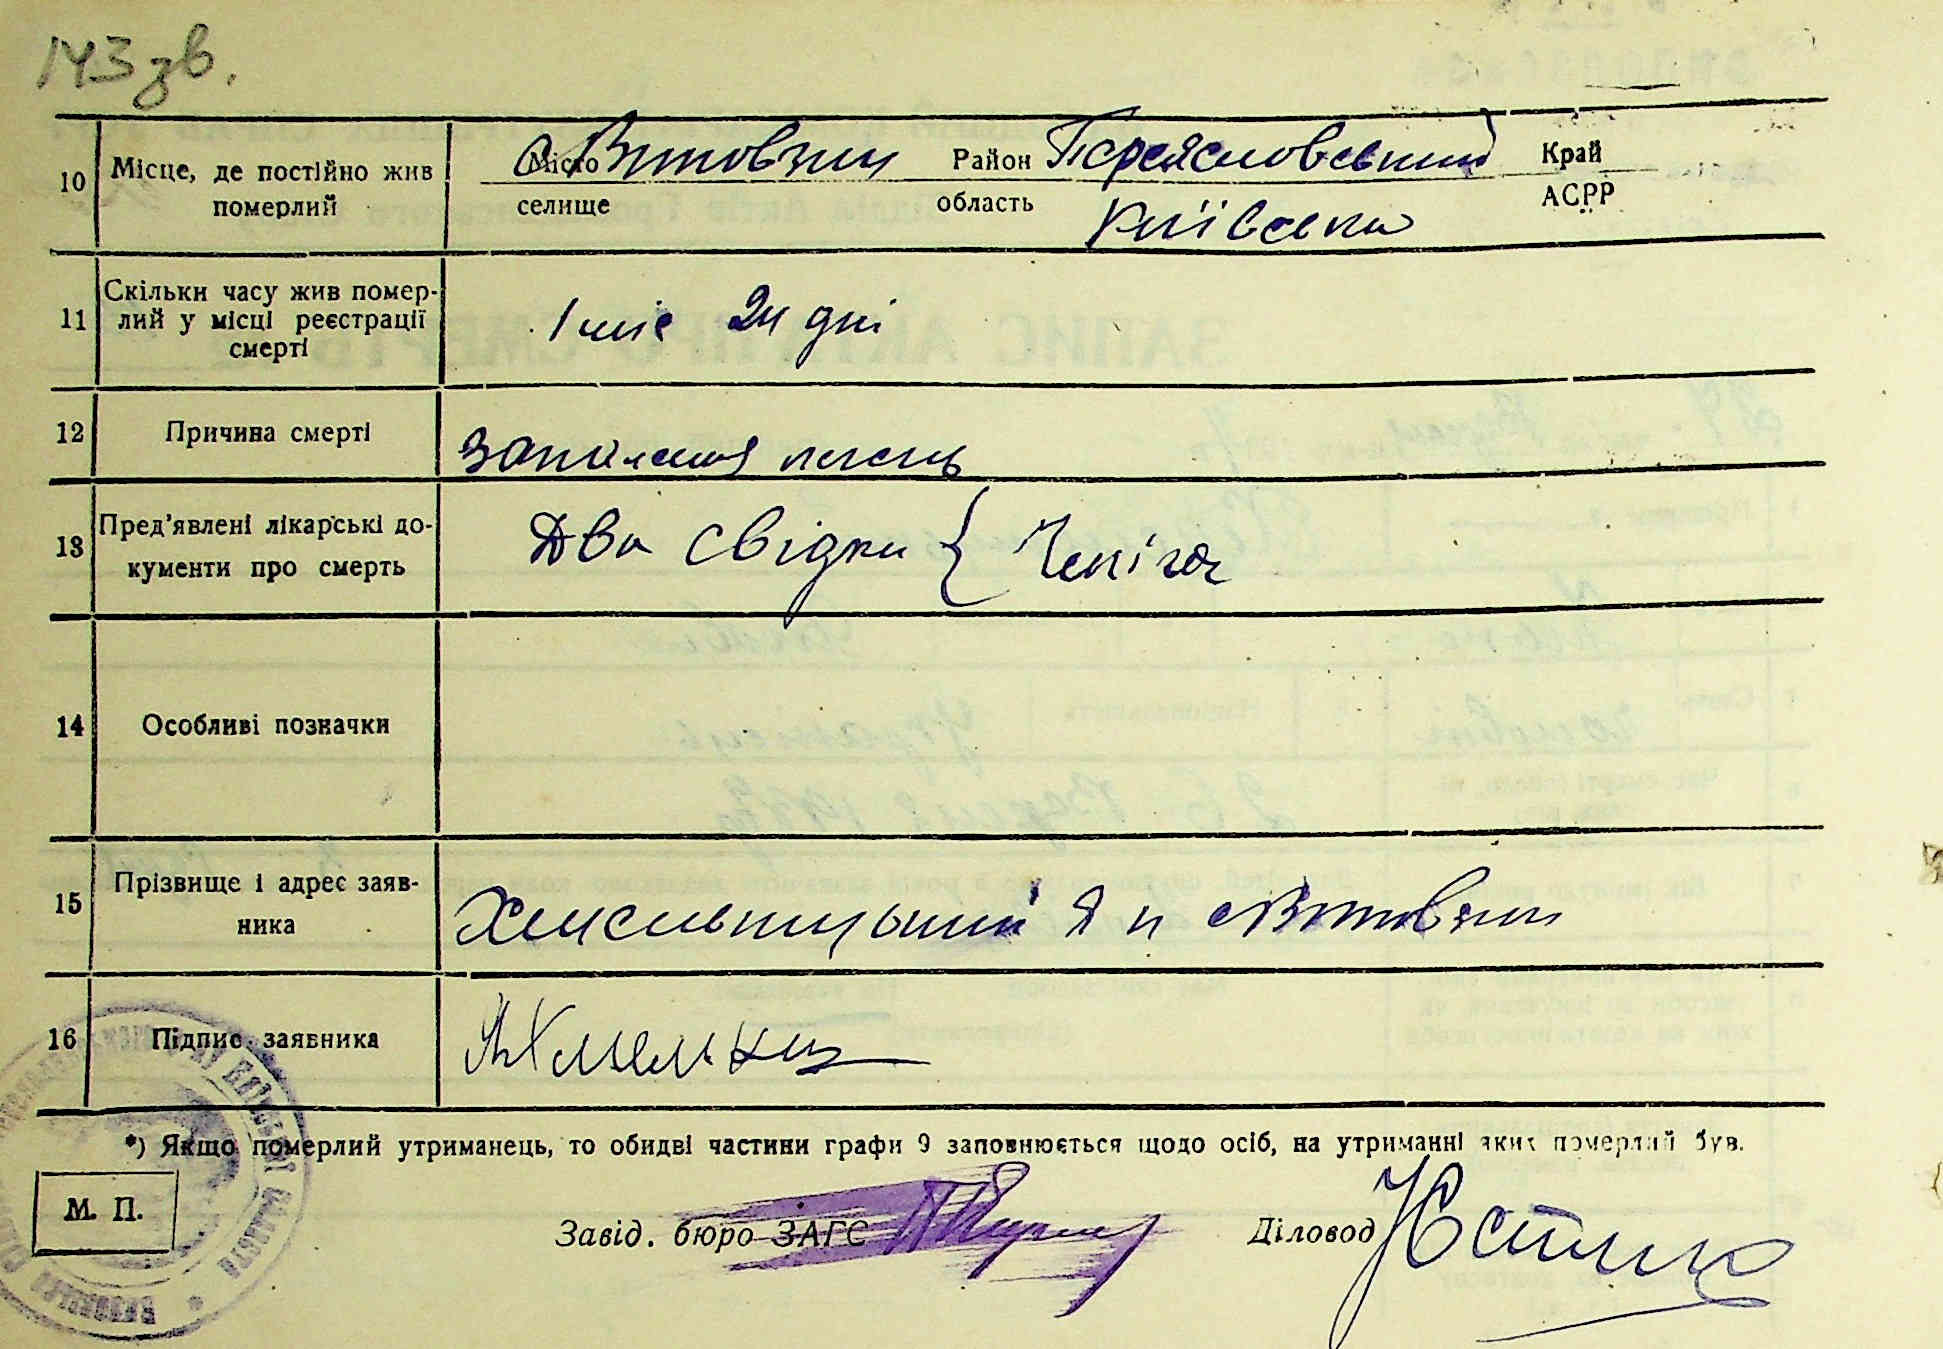 143 зв.
10 Місце, де постійно жив померлий
с Вітовзки Район Переясловський Край
Місто
селище область Київська АСРР
11 Скільки часу жив померлий у місці реєстрації смерті
1 міс 24 дні
12 Причина смерті
запалення легень
13 Пред'явлені лікарські документи про смерть
Два свідки { Чепіга
14 Особливі позначки
15 Прізвище і адрес заявника
Хмельницький Я
16 Підпис заявника
*) Якщо померлий утриманець, то обидві частини графи 9 заповнюється щодо осіб, на утриманні яких померлий був.
М. П.
Завід. бюро ЗАГС
Діловод